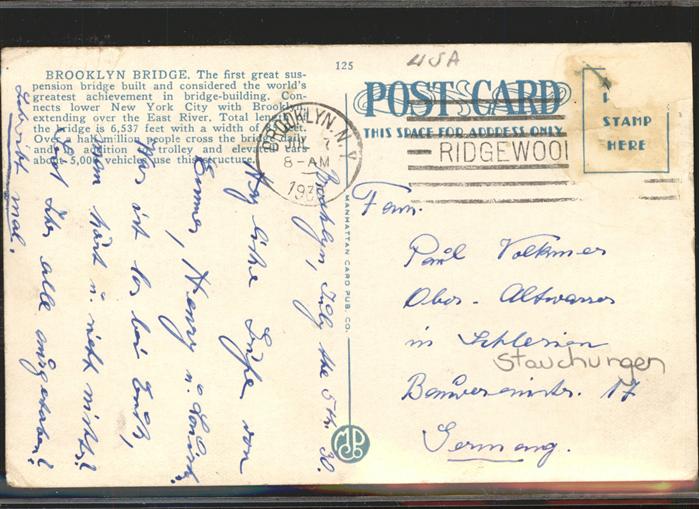 125
USA
BROOKLYN BRIDGE. The first great sus-
pension bridge built and considered the world's
greatest achievement in bridge-building. Con-
nects lower New York City with Brooklyn,
extending over the East River. Total length of
the bridge is 6,537 feet with a width of feet.
Over a half million people cross the bridge daily
and in addition to trolley and elevated
about 5,000 vehicles use this structure.
POST CARD
THIS SPACE FOR ADDRESS ONLY
STAMP
HERE
BROOKLYN, N.Y.
8-AM
RIDGEWOO
MANHATTAN CARD PUB. CO.
Brooklyn, July the 5th. 30.
Herzliche Grüße von
Emma, Henry u. Louise.
Was ist los bei Euch,
man hört u. sieht nichts?
Habt Ihr alle
Schreibt mal.
Fam.
Paul Volkmer
Ober-Altwasser
in Schlesien
Stauchungen
17
Germany.